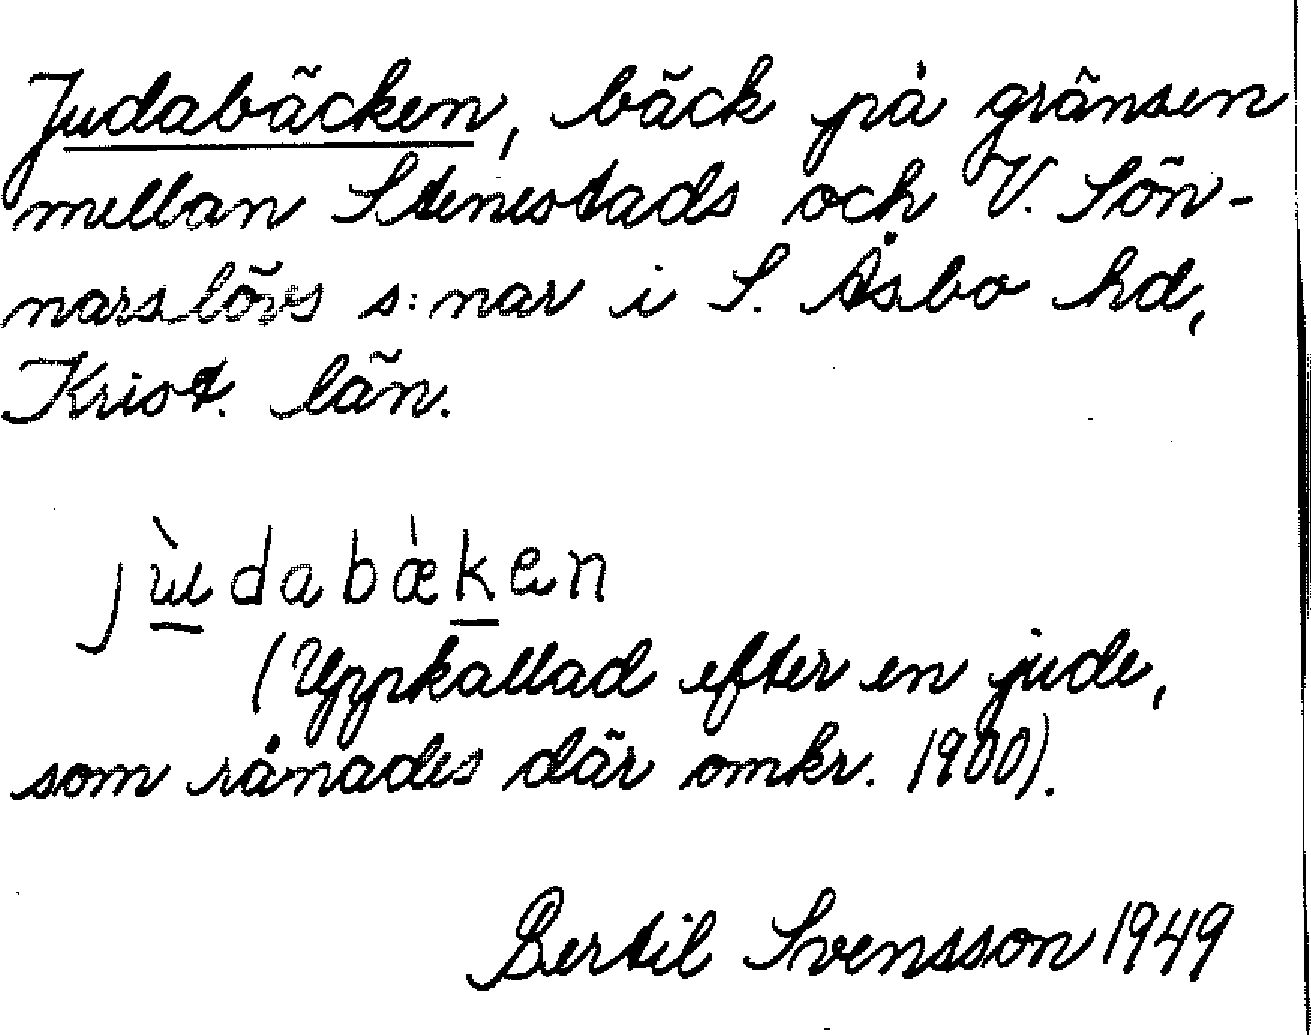 Judabäcken, bäck på gränsen
mellan Stenestads och V. Sön-
narslövs s:nar i S. Åsbo hd,
Krist. län.
jùdabæ̀ken
(Uppkallad efter en jude,
som rånades där omkr. 1900).
Bertil Svensson 1949